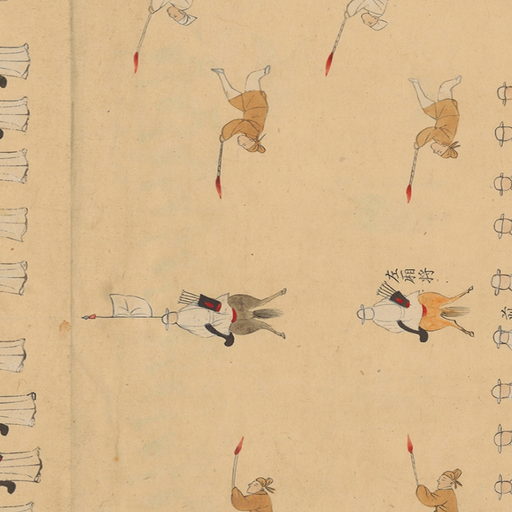 左廂將